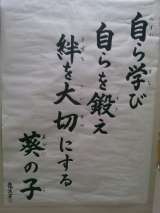 自ら学び
自らを鍛え
絆を大切にする
葵の子